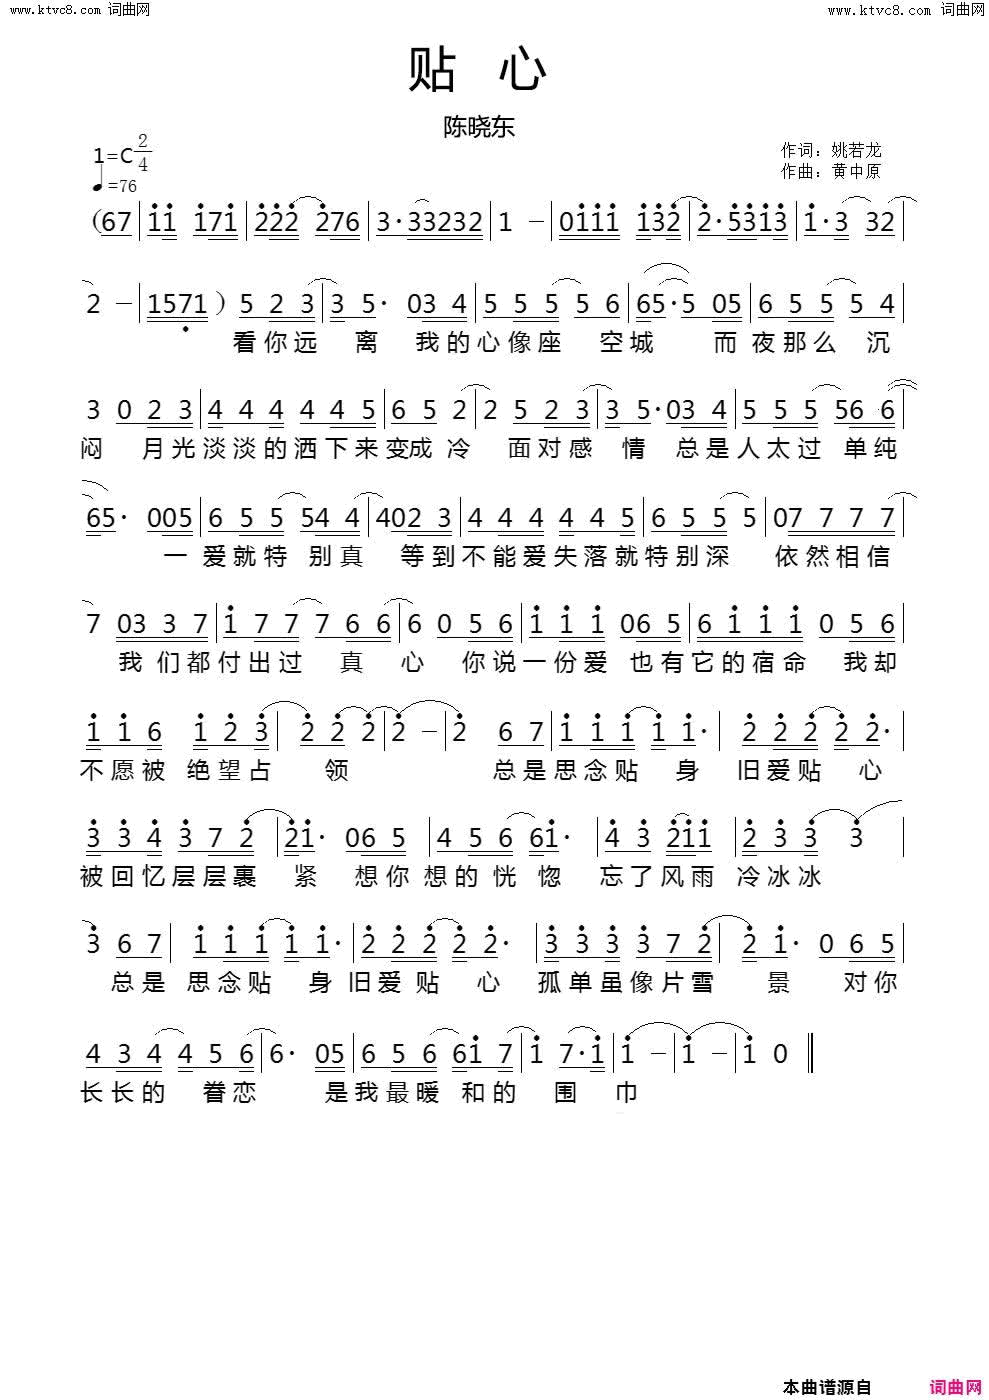 www.ktvc8.com 词曲网 www.ktvc8.com 词曲网
贴 心
陈晓东
1=C 2/4
♩=76
作词：姚若龙
作曲：黄中原
(67 | 11 171 | 222 276 | 3·33232 | 1 － | 0111 132 | 2·5313 | 1·3 32 |
2 － | 1571 ) 5 2 3 | 3 5· 034 | 5 5 5 5 6 | 65·5 05 | 6 5 5 5 4 |
看你远 离 我的心像座 空城 而夜那么 沉
3 0 2 3 | 4 4 4 4 4 5 | 6 5 2 | 2 5 2 3 | 3 5·034 | 5 5 5 566 |
闷 月光淡淡的洒下来变成冷 面对感 情 总是人太过 单纯
65· 005 | 6 5 5 544 | 4023 | 4 4 4 4 4 5 | 6 5 5 5 | 07 7 7 7 |
一 爱就特 别真 等到不能爱失落就特别深 依然相信
7 03 3 7 | 1 7 7 7 6 6 | 6 0 5 6 | 1 1 1 065 | 6 1 1 1 0 5 6 |
我们都付出过 真 心 你说一份爱 也有它的宿命 我却
1 1 6 1 2 3 | 2 2 2 | 2 － | 2 6 7 | 1 1 1 1 1· | 2 2 2 2 2· |
不愿被 绝望占 领 总是思念贴 身 旧爱贴 心
3 3 4 3 7 2 | 21· 065 | 4 5 6 61· | 4 3 211 | 2 3 3 3 |
被回忆层层裹 紧 想你想的恍 惚 忘了风雨 冷冰冰
3 6 7 | 1 1 1 1 1· | 2 2 2 2 2· | 3 3 3 3 7 2 | 2 1· 0 6 5 |
总是 思念贴 身 旧爱贴 心 孤单虽像片雪 景 对你
4 3 4 4 5 6 | 6· 05 | 6 5 6 61 7 | 1 7·1 | 1 － | 1 － | 1 0 ‖
长长的 眷恋 是我最暖 和的 围 巾
本曲谱源自 词曲网